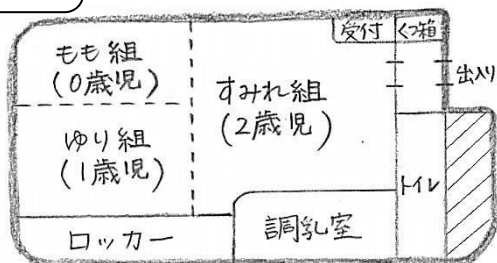 もも組
(0歳児)
ゆり組
(1歳児)
すみれ組
(2歳児)
受付
くつ箱
出入り
トイレ
調乳室
ロッカー